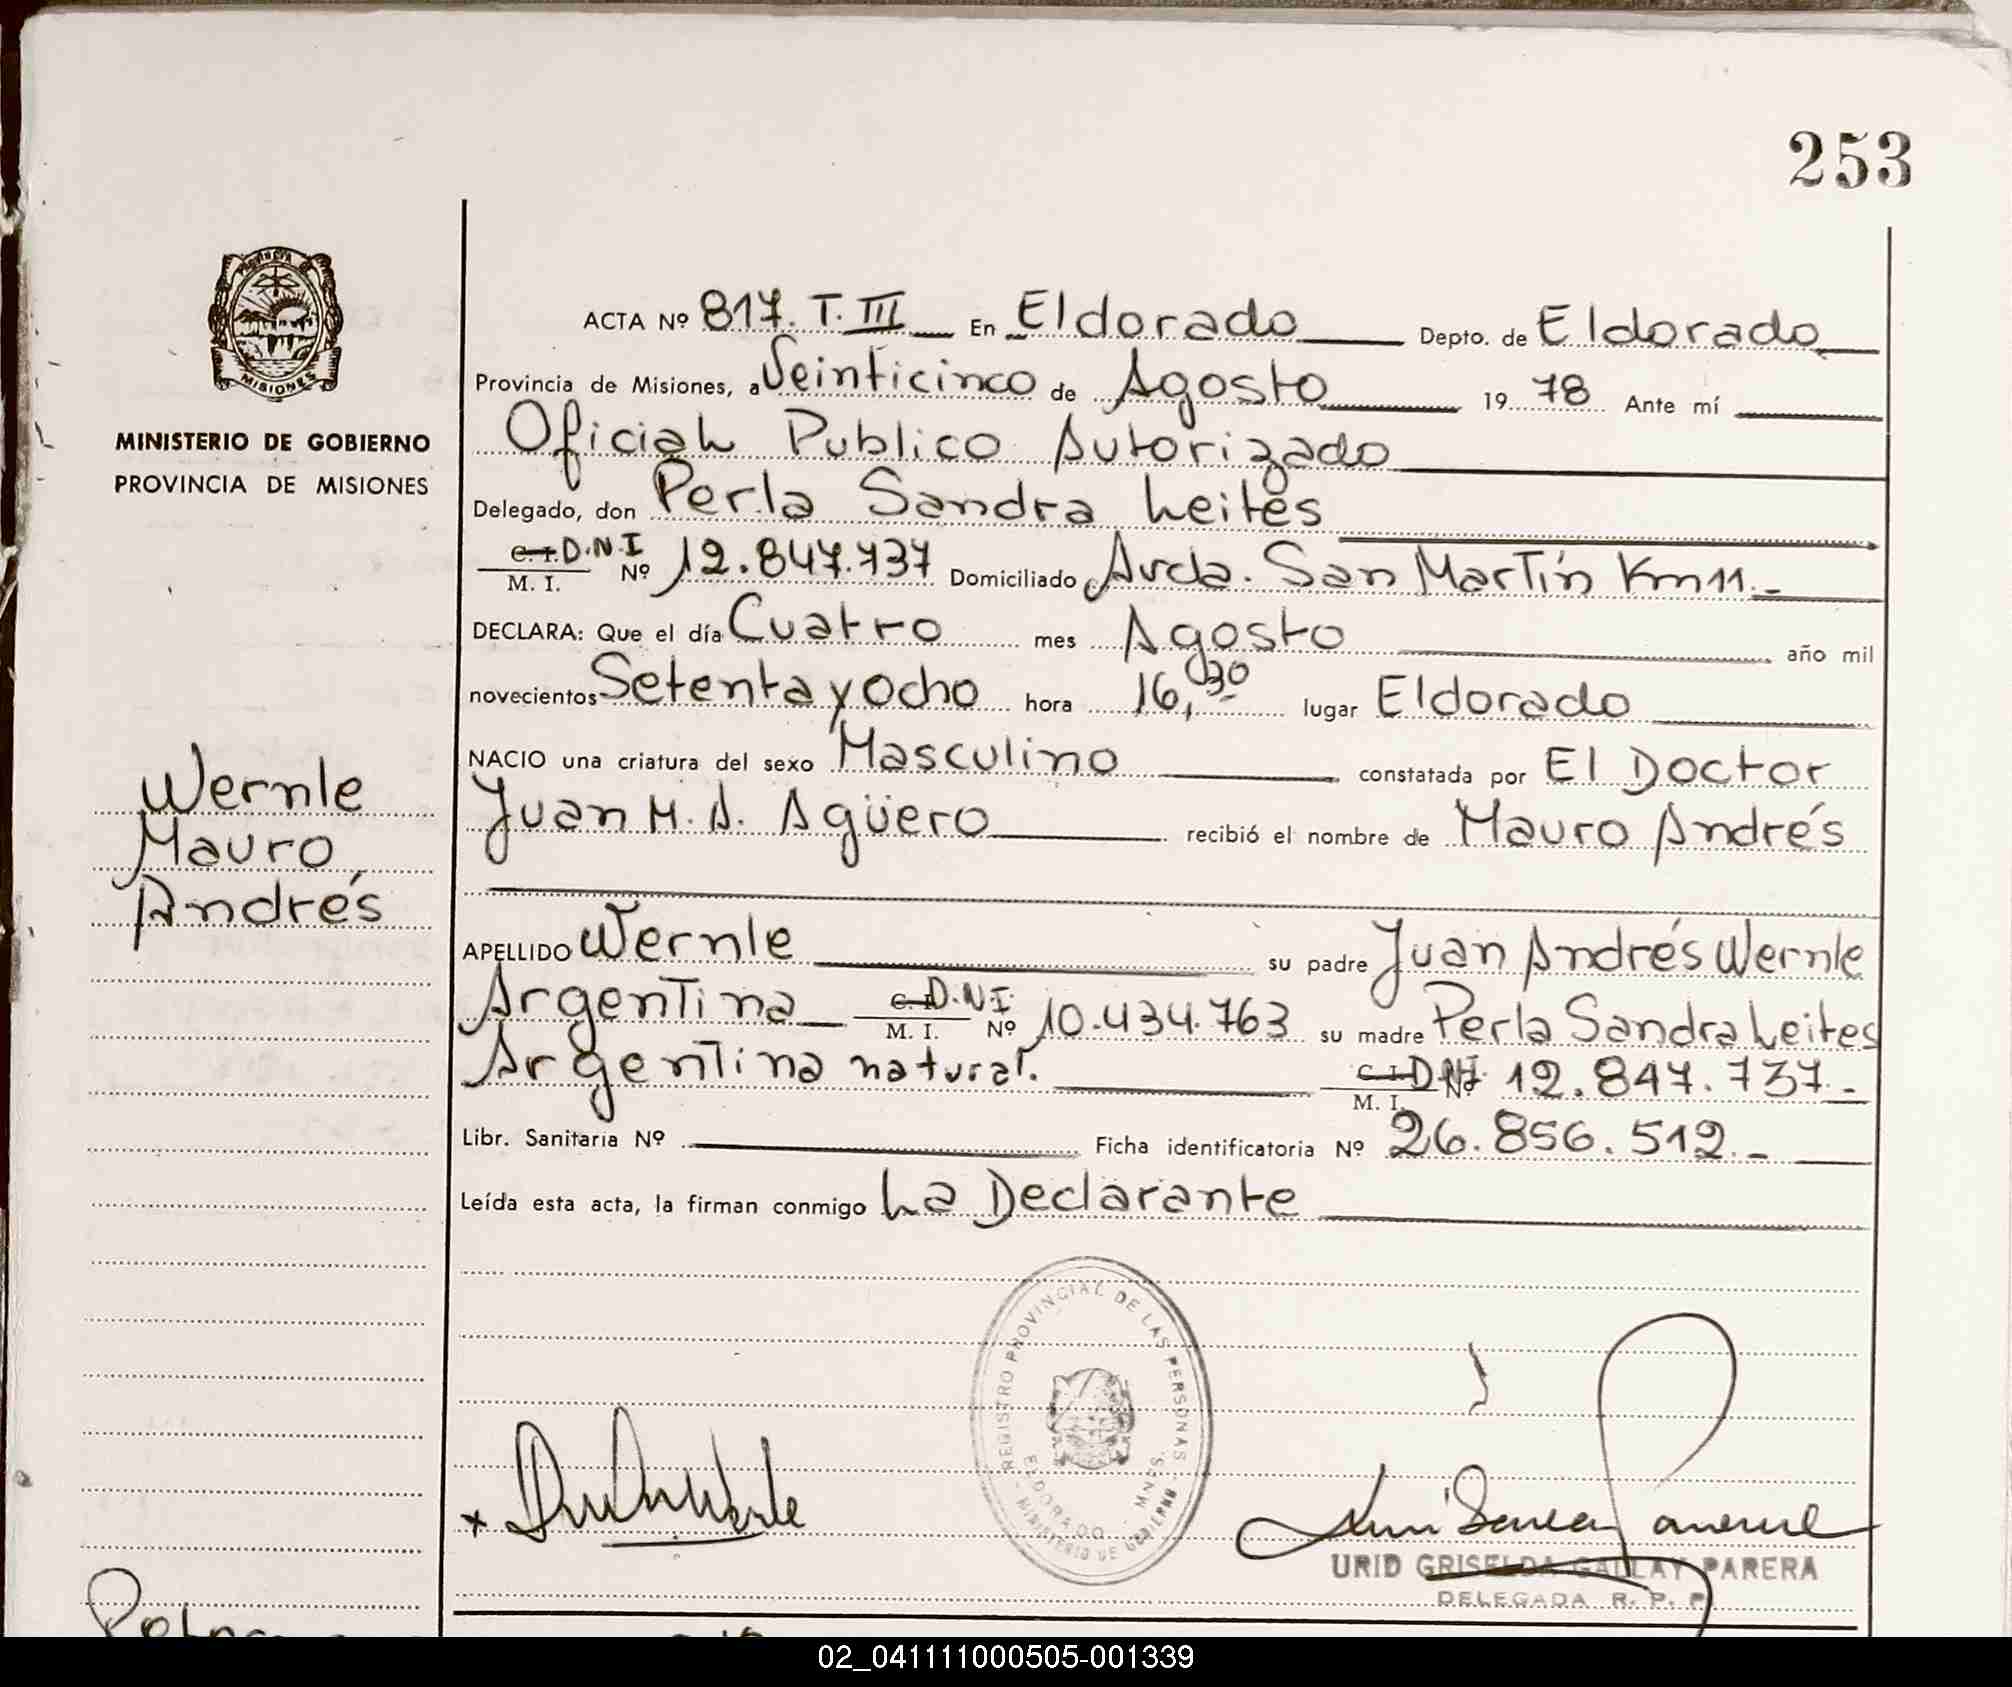 253
ACTA Nº 817. T. III En Eldorado Depto. de Eldorado
Provincia de Misiones, a Veinticinco de Agosto 1978 Ante mí
Oficial Publico Autorizado
Delegado, don Perla Sandra Leites
C. I. D.N.I
M. I. Nº 12.847.737 Domiciliado Avda. San Martín Km 11.-
MINISTERIO DE GOBIERNO
PROVINCIA DE MISIONES
MISIONES
DECLARA: Que el día Cuatro mes Agosto año mil
novecientos Setenta y Ocho hora 16,30 lugar Eldorado
NACIO una criatura del sexo Masculino constatada por El Doctor
Juan M. A. Agüero recibió el nombre de Mauro Andrés
Wernle
Mauro
Andrés
APELLIDO Wernle su padre Juan Andrés Wernle
Argentina C. I. D.N.I. M. I. Nº 10.434.763 su madre Perla Sandra Leites
Argentina natural. C. I. DNI M. I. Nº 12.847.737.-
Libr. Sanitaria Nº Ficha identificatoria Nº 26.856.512.-
Leída esta acta, la firman conmigo La Declarante
REGISTRO PROVINCIAL DE LAS PERSONAS
ELDORADO MNES.
MINISTERIO DE GOBIERNO
URID GRISELDA GALLAY PARERA
DELEGADA R. P. P.
02_041111000505-001339